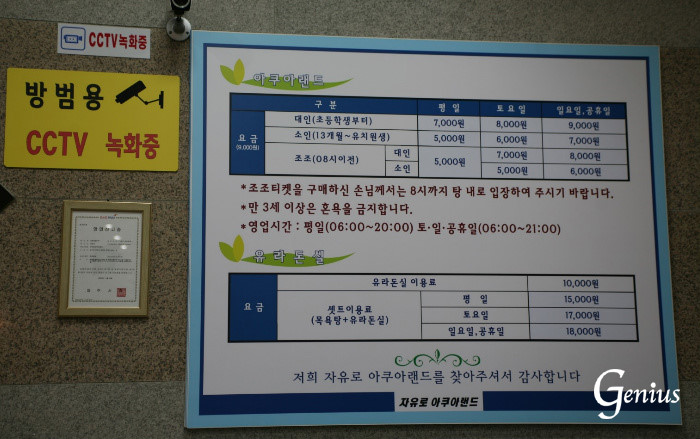 CCTV녹화중
방범용
CCTV 녹화중
아쿠아랜드
구 분 평 일 토요일 일요일,공휴일
요금
(9,000원)
대인(초등학생부터) 7,000원 8,000원 9,000원
소인(13개월~유치원생) 5,000원 6,000원 7,000원
조조(08시이전) 대인 5,000원 7,000원 8,000원
소인 5,000원 6,000원
*조조티켓을 구매하신 손님께서는 8시까지 탕 내로 입장하여 주시기 바랍니다.
*만 3세 이상은 혼욕을 금지합니다.
*영업시간 : 평일(06:00~20:00) 토·일·공휴일(06:00~21:00)
유라돈실
요금 유라돈실 이용료 10,000원
셋트이용료
(목욕탕+유라돈실)
평 일 15,000원
토요일 17,000원
일요일,공휴일 18,000원
저희 자유로 아쿠아랜드를 찾아주셔서 감사합니다
자유로 아쿠아랜드
Genius